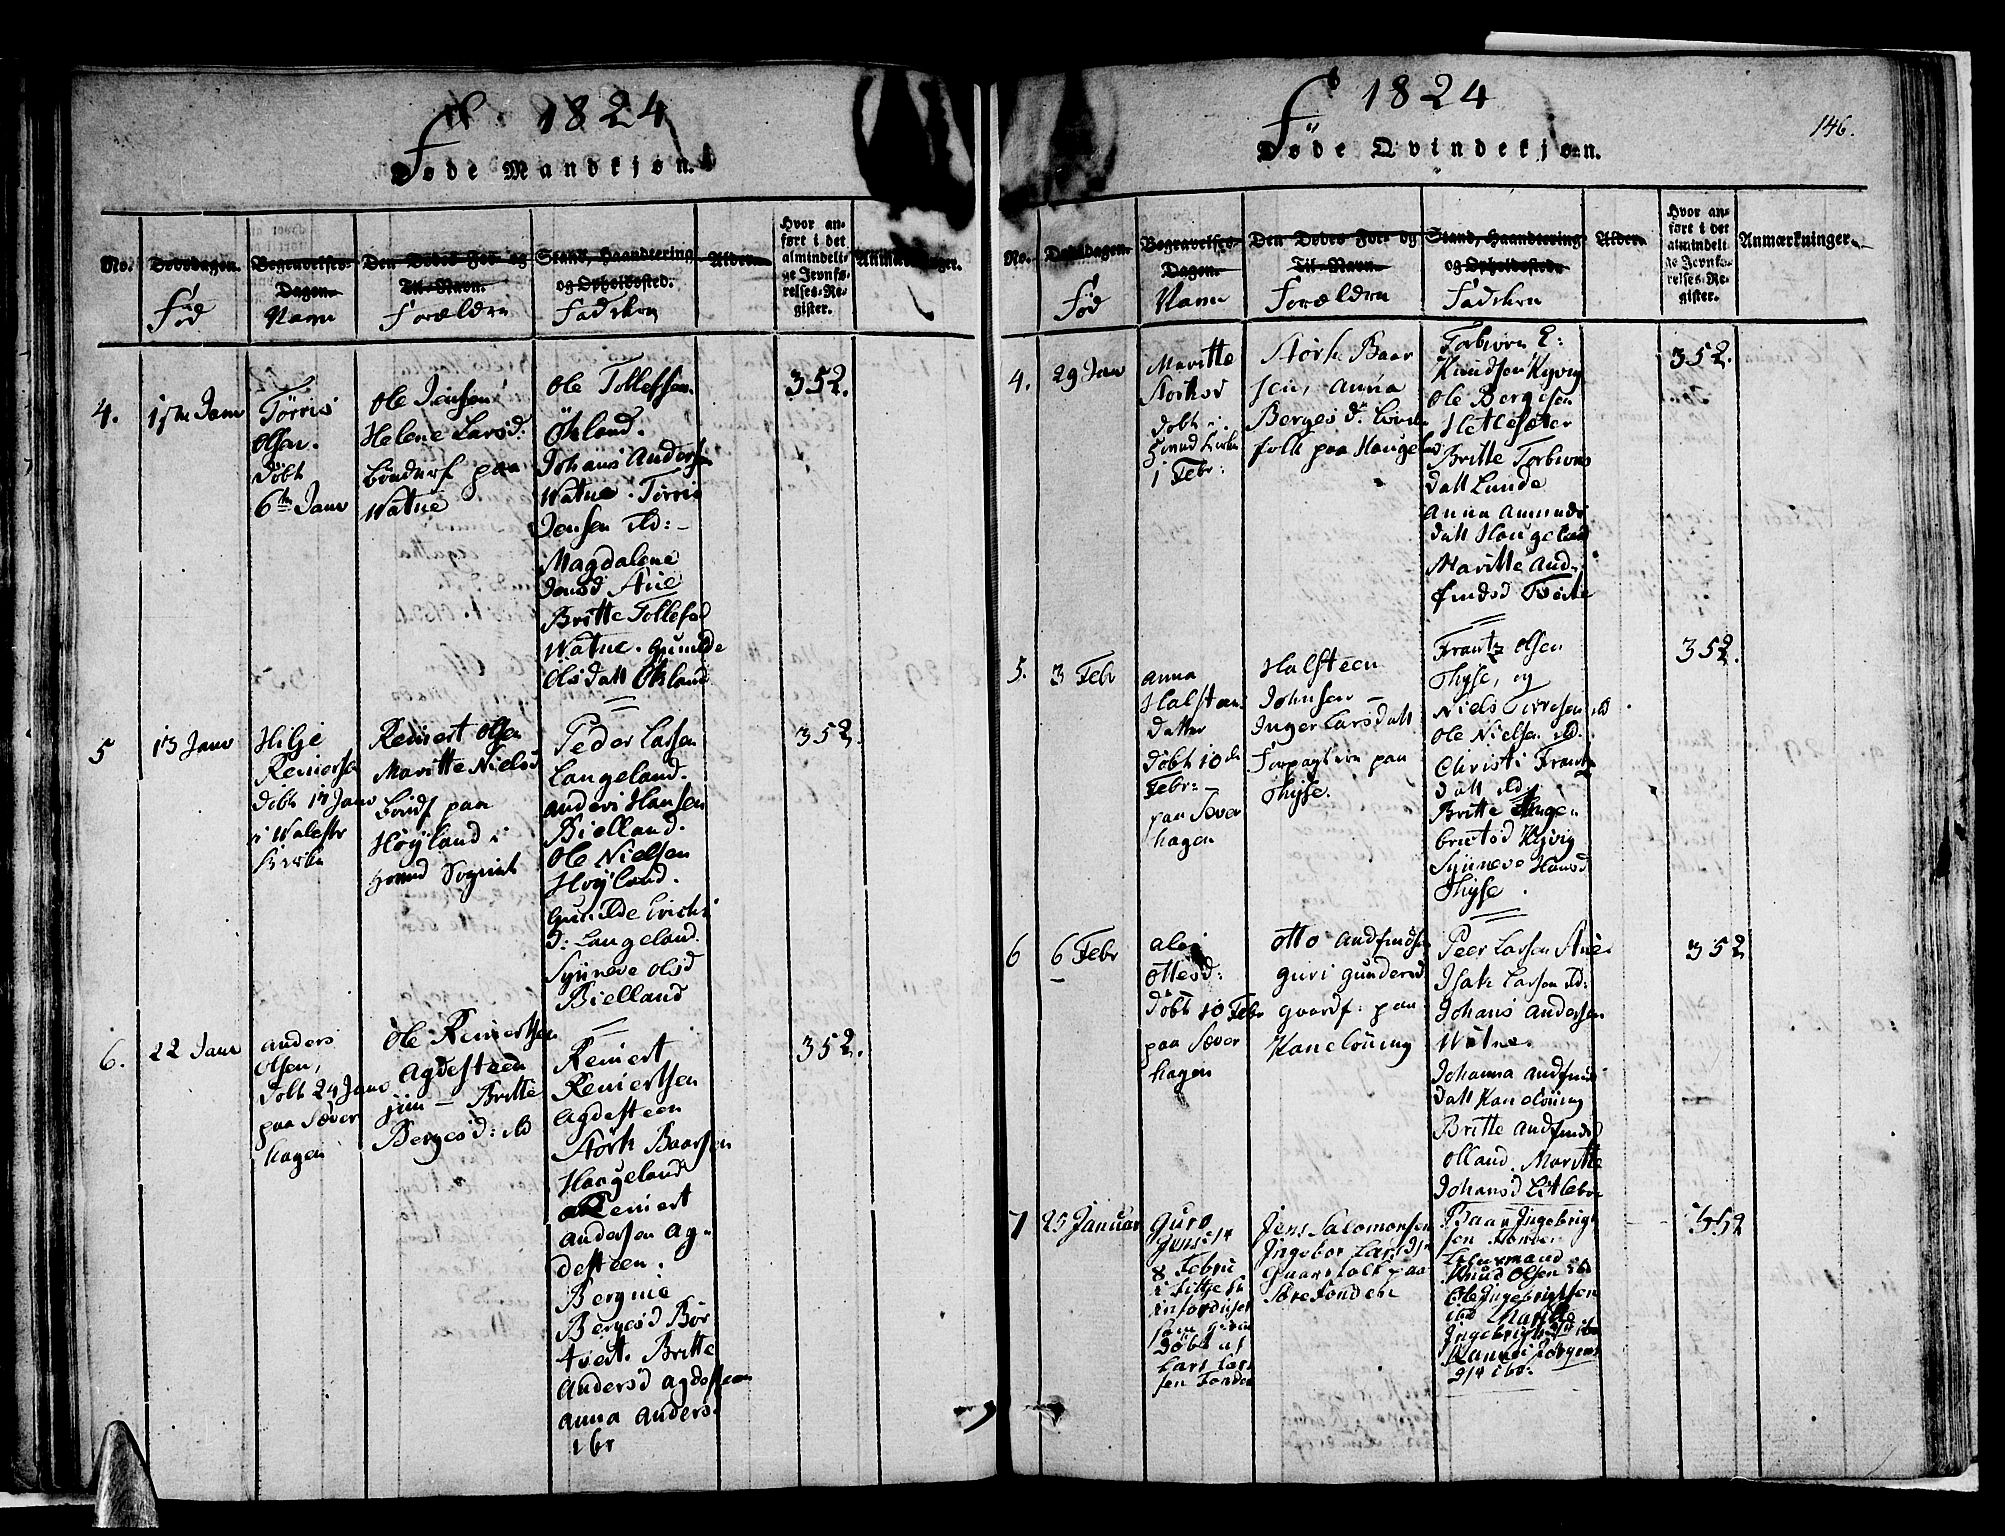 1824
Føde Mandkjøn.
No.
Dødsdagen.
Fød
Begravelses-
Dagen.
Navn
Den Dødes For- og
Til-Navn.
Forældre
Stand, Haandtering
og Opholdssted.
Faddere
Alder.
Hvor an-
ført i det
almindeli-
ge Jevnfø-
relses-Re-
gister.
Anmærkninger.
4.
1ste Janr
Tørris
Olsen.
døbt
6te Janr
Ole Jensen
Helene Larsd.
paa
Watne
Ole Tollefsen
Økland.
Johans Anders
Watne. Tørris
Jensen ibd: -
Magdalene
Jensd Aue
Britte Tollefsd
Watne. Gunilde
Olsdatt Økland
352.
5
13 Janr
Hilje
Reniersen
døbt 17 Janr
i Walestr
Kirke
Reniert Olsen
Maritte Nielsd
paa
Høyland i
Sognet
Peder Larsen
Langeland.
Anders Hansen
Bielland.
Ole Nielsen
Høyland.
Gunilde Erichs
d: Langeland.
Syneve Olsd
Bielland
352.
6.
22 Janr
Anders
Olsen,
døbt 24 Janr
paa Sæver
hagen
Ole Reniertsen
Agdesteen
jun - Britte
Bergesd: ibd
Reniert
Reniertsen
Agdesteen
Størk Baarsen
Haugeland
Reniert
Andersen Ag-
desteen.
Bergnie
Bergesd Bør
tveit. Britte
Andersd Agdesteen
Anna Anders.
ibr
352.
1824
146.
Føde Qvindekjøn.
No.
Dødsdagen.
Fød
Begravelses-
Dagen.
Navn
Den Dødes For- og
Til-Navn.
Forældre
Stand, Haandtering
og Opholdssted.
Faddere
Alder.
Hvor an-
ført i det
almindeli-
ge Jevnfø-
relses-Re-
gister.
Anmærkninger.
4.
29 Jan
Maritte
Størksd
døbt i
Kirke
1 Febr:
Størk Baar
sen, Anna
Bergesd:
folk paa Haugeland
Torbiørn E:
Knudsen Kyvig
Ole Bergesen
Hetlesæter
Britte Torbiørns
datt Lunde
Anna Amunds
datt Haugeland
Maritte And-
findsd
352.
5.
3 Febr
Anna
Halsteens
datter
døbt 10de
Febr:
paa Sæver
hagen
Halsteen
Johnsen -
Inger Larsdatt
Forpagtere paa
Thyse.
Frantz Olsen
Thyse, og
Niels Tørresen ibd
Ole Nielsen ibd.
Christi Frantz
datt ibd
Britte Inge-
brectsd Kyvig
Syneve Hansd
Thyse.
352.
6
6 Febr
Ale
Ottesd:
døbt 10 Febr
paa Sæver
hagen
Otto Andfindsen
Guri Gundersd
Gaardf: paa
Kaneløning
Peer Larsen Aue
Isak Larsen ibd:
Johans Andersen
Watne.
Johanna Andfinds
datt Kaneløning
Britte Andfindsd
Olland. Maritte
Johansd Litlebø
352
7
25 Januar
Guro
Jensdtr
8 Febru
i Fittje
som
Døbt af
Lars Lars
sen Fonde
Jens Salomonsen
Ingebor Larsdtr
Gaardfolk paa
Sørefonden
Baar Ingebrigt
sen Fonden
Knud Olsen ibd
Ole Ingebrigtsen
ibd Maritte
Ingebrigtsdtr ibd
dtr ibd.
352